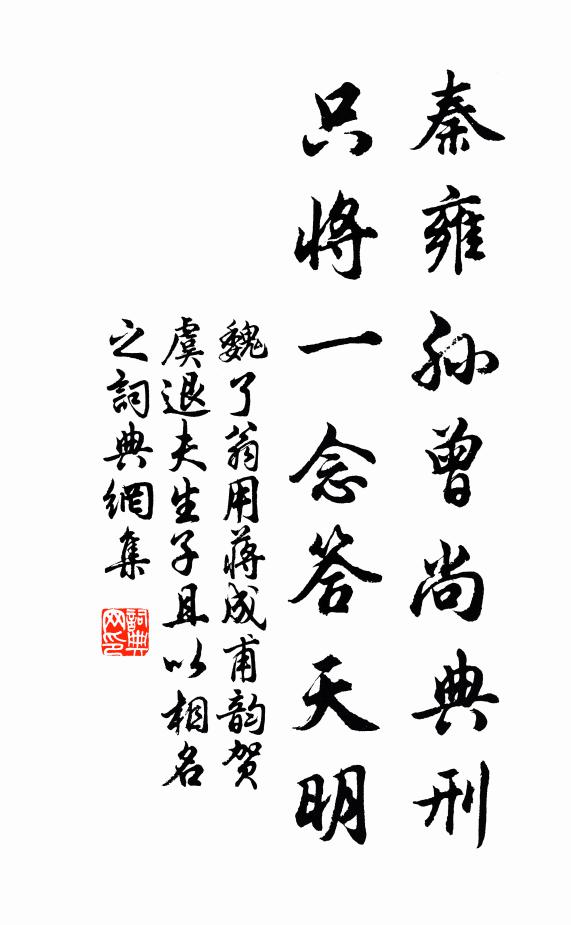 秦雍孙曾尚典刑
只将一念答天明
魏了翁用蔣成甫韵贺
虞退夫生子且以相名
之詞典網集
詞典網印